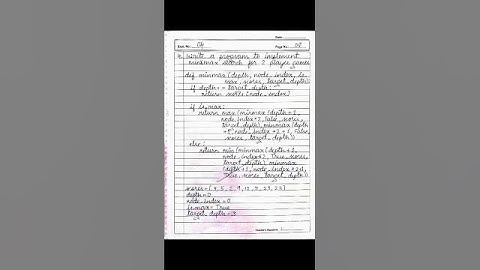 Date
Expt. No. 04
Page No. 08
4. Write a program to implement
minimax search for 2 player games
def minimax (depth, node_index, is_
max, scores, target_depth):
if depth == target_depth:
return scores[node_index]
if is_max:
return max(minimax(depth+1,
node_index*2, False, scores,
target_depth), minimax(depth
+1, node_index*2+1, False,
scores, target_depth))
else:
return min(minimax(depth+1,
node_index*2, True, scores,
target_depth), minimax
(depth+1, node_index*2+1,
True, scores, target_depth))
scores = [3, 5, 2, 9, 12, 5, 23, 23]
depth = 0
node_index = 0
is_max = True
target_depth = 3
Teacher's Signature